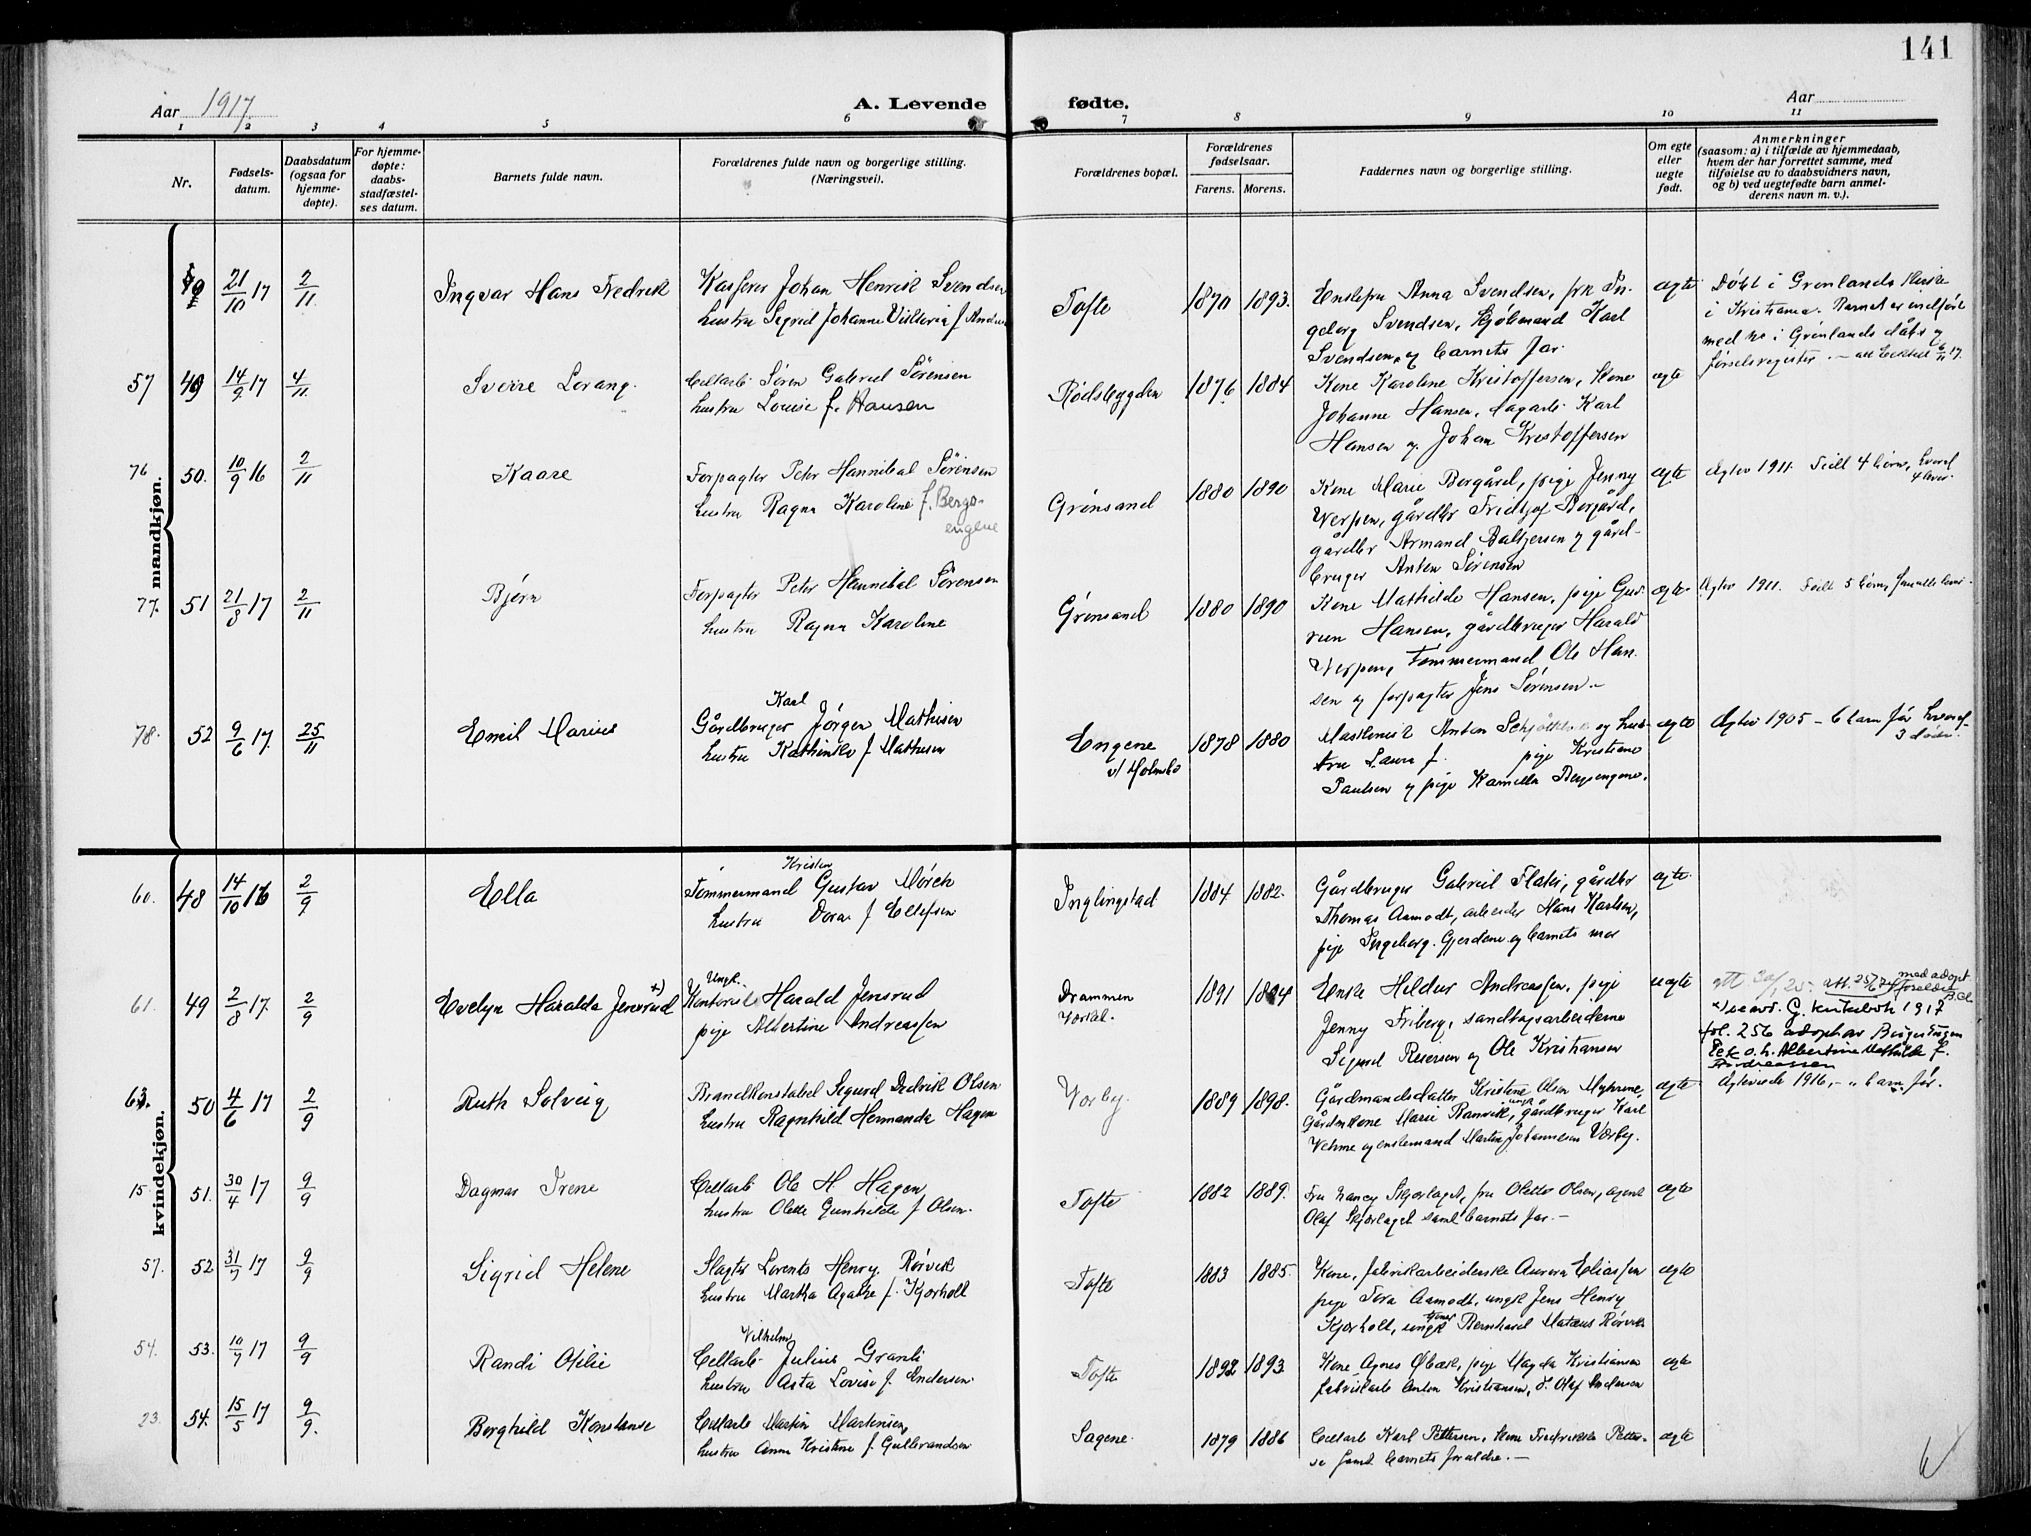 141
Aar 1917.
A. Levende fødte.
Aar
1 2 3 4 5 6 7 8 9 10 11
Nr.
Fødsels-
datum.
Daabsdatum
(ogsaa for
hjemme-
døpte).
For hjemme-
døpte:
daabs-
stadfæstel-
ses datum.
Barnets fulde navn.
Forældrenes fulde navn og borgerlige stilling.
(Næringsvei).
Forældrenes bopæl.
Forældrenes
fødselsaar.
Farens. Morens.
Faddernes navn og borgerlige stilling.
Om egte
eller
uegte
født.
Anmerkninger
(saasom: a) i tilfælde av hjemmedaab,
hvem der har forrettet samme, med
tilføielse av to daabsvidners navn,
og b) ved uegtefødte barn anmel-
derens navn m. v.).
mandkjøn.
21/10 17 2/11 Ingvar Hans Fredrik
Kasserer Johan Henrik Svendsen
hustru Sigrid Johanne Viktoria f.
Tofte 1870 1893.
Enkefru Anna Svendsen, frk In-
geborg Svendsen, Karl
Svendsen og barnets far.
egte
Døbt i Grønlands Kirke
i Kristiania. Barnet er indført
med no i Grønlands dåbs og
fødselsregister.
57 49 14/9 17 4/11 Sverre Lorang.
Cellarb. Søren Gabriel Sørensen
hustru Louise f. Hansen
Rødsbygden 1876 1884
Kone Karoline Kristoffersen, Kone
Johanne Hansen, dagarb. Karl
Hansen og Johan Kristoffersen
egte
76 50. 10/9 16 2/11 Kaare
Forpagter Peter Hannibal Sørensen
hustru Ragna Karoline f. Bergs-
engene
Grønsand 1880 1890
Kone Marie Borgård, pige Jenny
Verpen, gårdbr Fridtjof Borgård,
gårdbr Armand Baltzersen og gård-
bruger Anton Sørensen
egte
Agtev 1911. Født 4 børn, hvoraf
4 lever.
77. 51 21/8 17 2/11 Bjørn
Forpagter Peter Hannibal Sørensen
hustru Ragna Karoline
Grønsand 1880 1890
Kone Mathilde Hansen, pige Gud-
run Hansen, gårdbruger Harald
Verpen, Tømmermand Ole Han-
sen og forpagter Jens Sørensen.-
egte.
Agtev 1911. Født 5 børn,
78. 52 9/6 17. 25/11 Emil Marius
Karl
Gårdbruger Jørgen Mathisen
hustru Kathinka f Mathisen
Engene
v/ Holmsbo
1878 1880
Maskinist Anton og hus-
tru Laura f. pige Kristiane
Paulsen og pige Kamilla Bergsengene.
egte
Agtev 1905 - 6 barn før hvoraf
3 døde.
kvindekjøn.
60. 48 14/10 16 2/9 Ella
Kristen
Tømmermand Gustav Mörch
hustru Dora f Ellefsen
Inglingstad 1884 1882.
Gårdbruger Gabriel Flater, gårdbr
Thomas Aamodt, arbeider Hans Karlsen,
pige Ingeborg Gjerdene og barnets mor
egte.
61. 49 2/8 17. 2/9 Evelyn Haralda Jensrud x)
Ungk.
Kontorist Harald Jensrud
pige Albertine Andreassen
Drammen
1891 1894
Enke Hildur Andreassen, pige
Jenny Friberg, sandtagsarbeiderne
Sigurd Reiersen og Ole Kristiansen
uegte
att 30/1 25. att. 25/6 med adopt
foreldre
kirkebok 1917
fol. 256 adopt av Birger
o.h. Albertine Mathilde f.
Andreassen
63. 50 4/6 17 2/9 Ruth Solveig
Brandkonstabel Sigurd Dedrik Olsen
hustru Ragnhild Hermanda Hagen
Verby. 1889 1898.
Gårdmandsdatter Kristine Olsen Myhrene,
Gårdmkone Marie Ramvik, ungk gårdbruger Karl
Vehme og enslemand Martin Johannesen Verby.
egte
Agteviede 1916, - 0 barn før.
15. 51. 30/4 17 9/9 Dagmar Irene
Cellarb Ole H. Hagen
hustru Olette Gunhilde f Olsen.
Tofte 1882 1889.
Fru Nancy Skjørlaget, fru Olette Olsen, agent
Olaf Skjørlaget samt barnets far.-
egte
57. 52 31/7 17 9/9 Sigrid Helene
Slagter Lorents Henry Rørvik
hustru Martha Agathe f. Kjorholt
Tofte 1883 1885.
Kone, fabrikarbeiderske Aurora Eliassen
pige Tora Aamodt, ungk Jens Henry
Kjorholt, ungk Bernhard Mataeus Rørvik
egte
54. 53. 10/7 17 9/9 Randi Otilie
Vilhelm
Cellarb. Julius Granli
hustru Asta Lovise f. Andersen.
Tofte 1892 1893.
Kone Agnes Øbæk, pige Magda Kristiansen
fabrikarb Anton Kristiansen, d. Olaf Andersen
egte
23. 54. 15/5 17 9/9. Borghild Konstanse
Cellarb Martin Martinsen,
hustru Anna Kristine f Gulbrandsen
Sagene. 1879 1886
Cellarb Karl Pettersen, Kone Fredrikke Petter-
se samt barnets forældre.-
egte